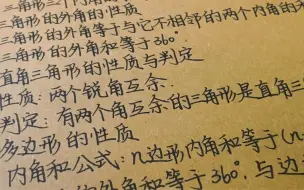 三角形的外角的性质
三角形的外角等于与它不相邻的两个内角的
三角形的外角和等于360°
直角三角形的性质与判定
性质：两个锐角互余.
判定：有两个角互余的三角形是直角三
多边形的性质
内角和公式：n边形内角和等于(n
外角和等于360°.与边